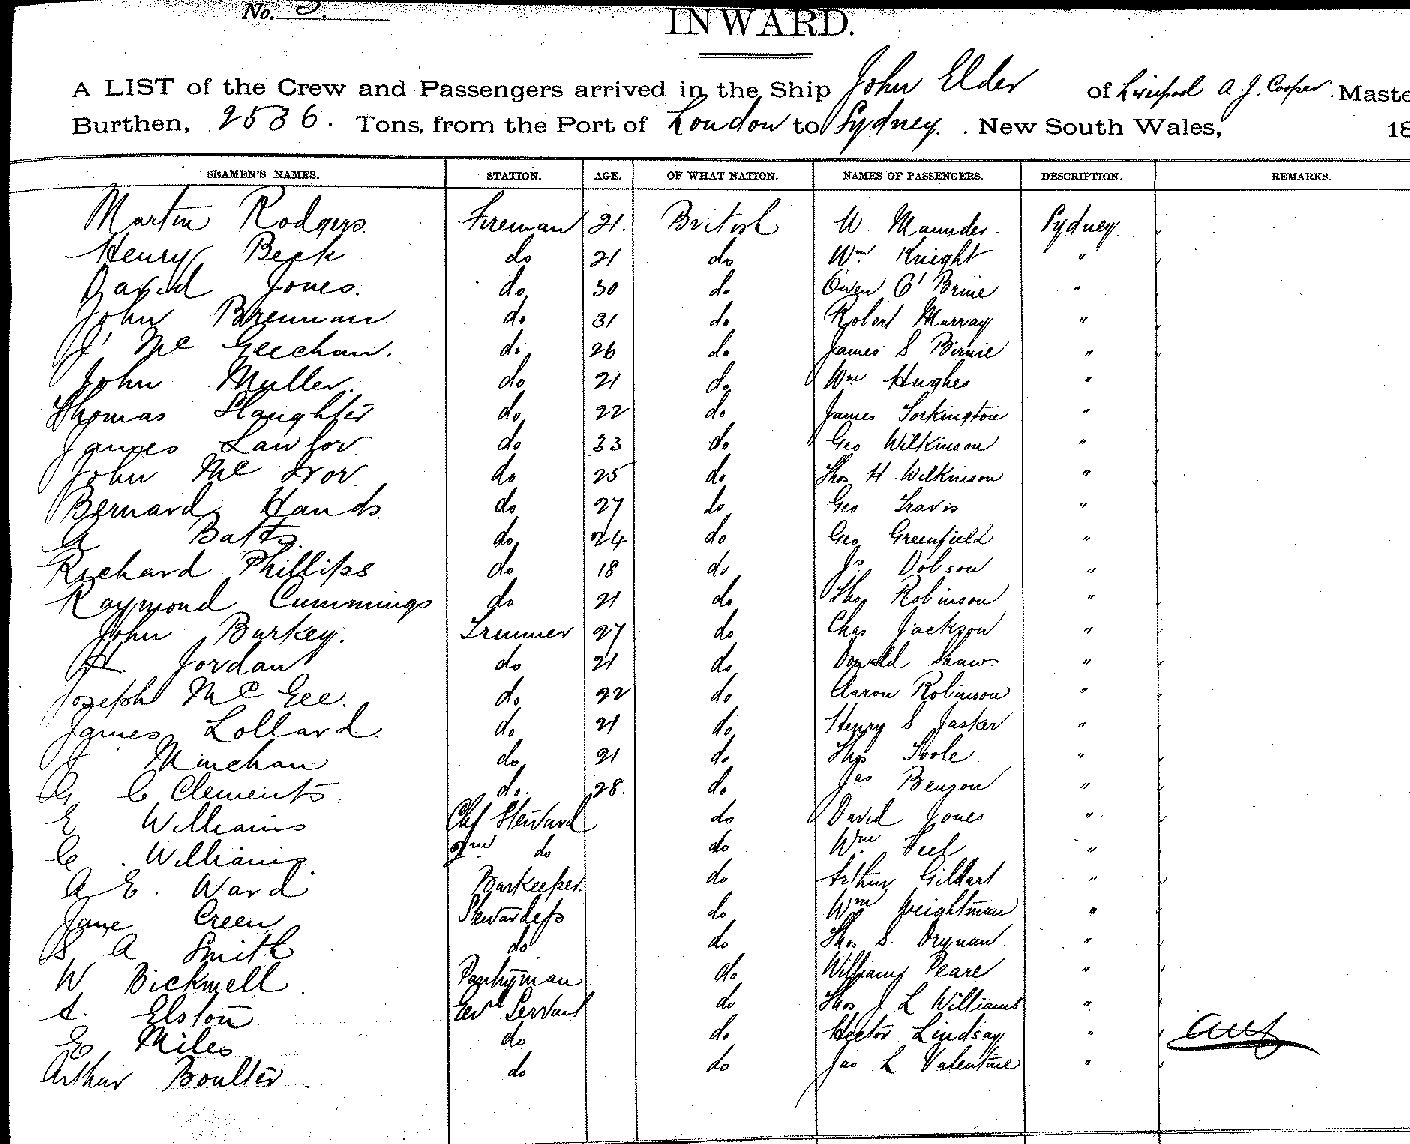 No. 3.
INWARD.
A LIST of the Crew and Passengers arrived in the Ship John Elder of Liverpool A J. Cooper Maste
Burthen, 2536. Tons, from the Port of London to Sydney. New South Wales, 18
SEAMEN'S NAMES. STATION. AGE. OF WHAT NATION. NAMES OF PASSENGERS. DESCRIPTION. REMARKS.
Martin Rodgers Fireman 21. British W. Maunder. Sydney
Henry Beck do 21 do Wm Knight "
David Jones. do 30 do Owen O' Brine "
John Brennan do 31 do Robert Murray "
J Mc Geechan. do 26 do James S Birnie "
John Muller. do 21 do Wm Hughes "
Thomas Slaughter do 22 do James Torkington "
James Lawlor do 33 do Geo Wilkinson "
John Mc Ivor do 25 do Thos H Wilkinson "
Bernard Hands do 27 do Geo Travis "
A Batts do 24 do Geo Greenfield "
Richard Phillips do 18 do Js Dobson "
Raymond Cummings do 21 do Thos Robinson "
John Burkey. Trimmer 27 do Chas Jackson "
H Jordan do 21 do Donald Shaw "
Joseph Mc Gee. do 22 do Aaron Robinson "
James Lollard do 21 do Henry S Jasker "
J Minehan do 21 do Thos Toole "
G C Clements do. 28. do Jas Benson "
E Williams Chf Steward do David Jones "
C. Williams 2nd do do Wm Peel "
A E. Ward Barkeeper do Arthur Gildart "
Jane Creen Stewardess do Wm Weightman "
S A Smith do do Thos S. Drynan "
W Bicknell Pantryman do William Peare "
A. Elston Genl Servant do Thos J L Williams "
E Miles do do Hector Lindsay "
Arthur Boulter do do Jas L Valentine "